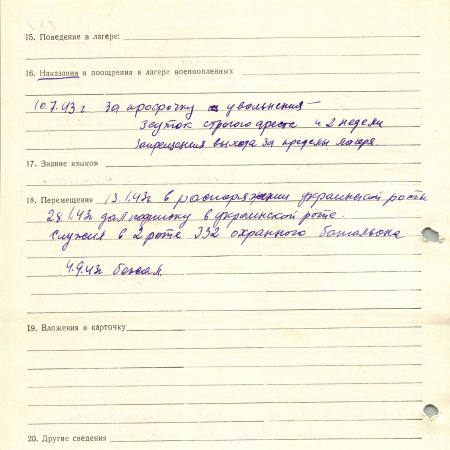 15. Поведение в лагере:
16. Наказания и поощрения в лагере военнопленных
10.7.43 г за просрочку увольнения –
3 суток строгого ареста и 2 недели
запрещения выхода за пределы лагеря.
17. Знание языков
18. Перемещения 13.1.43г в распоряжении украинской роты
28.1.43г дал подписку в украинской роте.
Служил в 2 роте 332 охранного батальона
4.9.43г бежал.
19. Вложения в карточку
20. Другие сведения